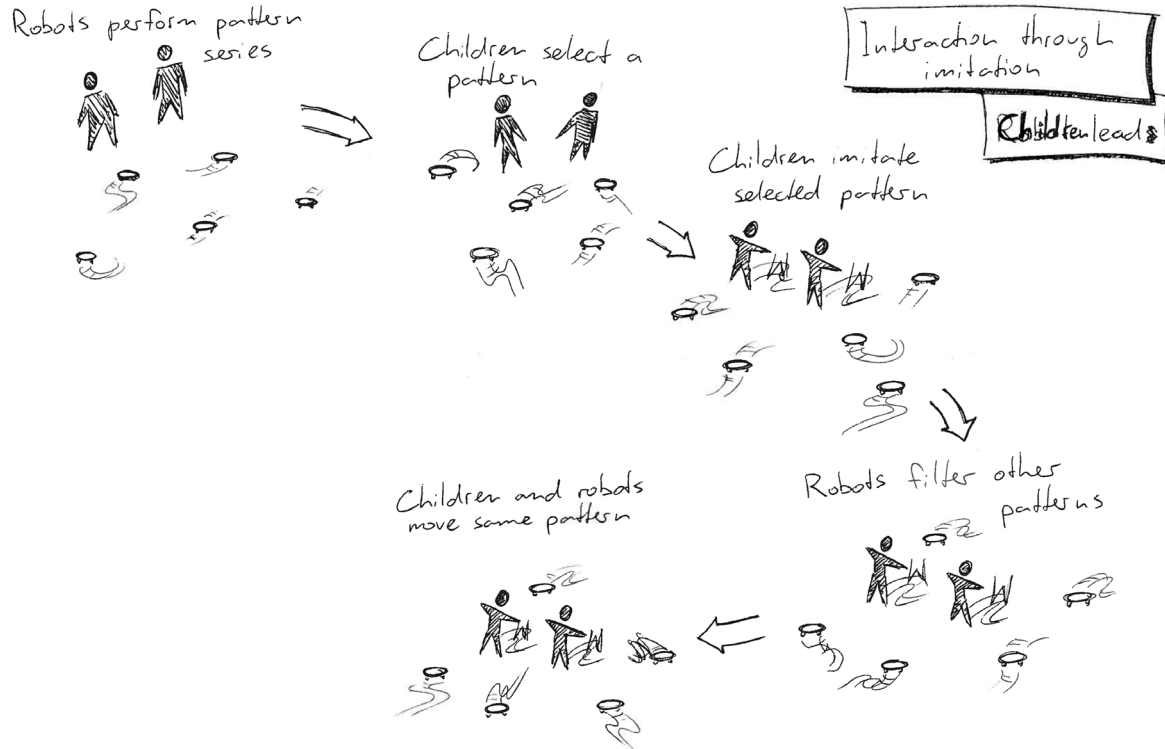 Robots perform pattern
series
Children select a
pattern
Interaction through
imitation
Children lead
Children imitate
selected pattern
Robots filter other
patterns
Children and robots
move same pattern